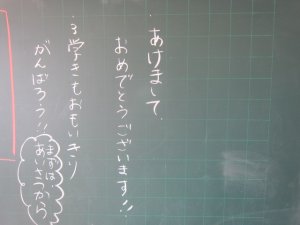 あけまして
おめでとうございます!!
3学きもおもいきり
がんばろう!!
まずは、
あいさつから